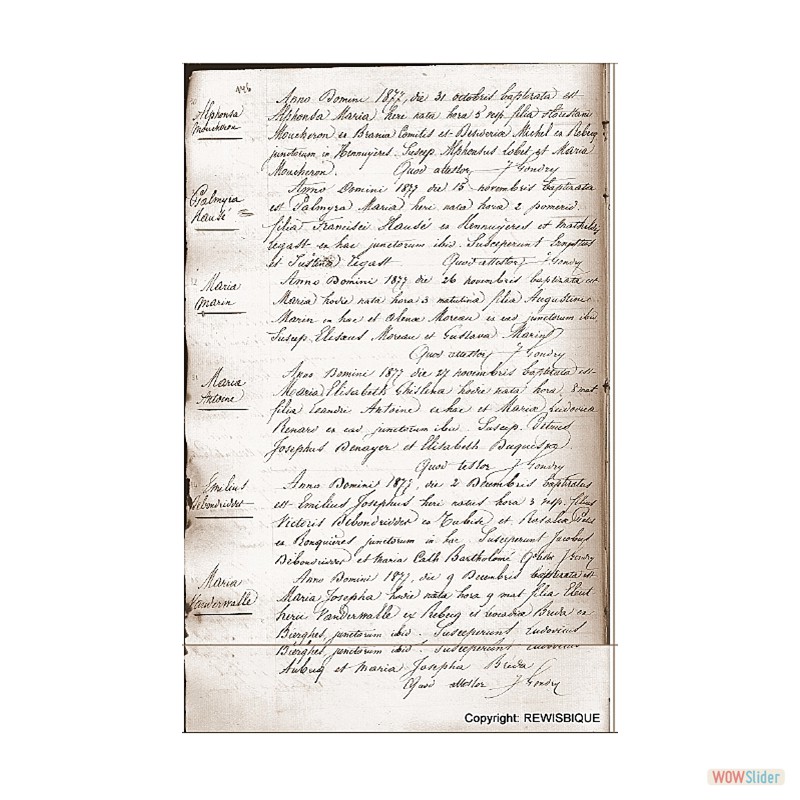 146
Alphonsa
Moucheron
Anno Domini 1877, die 31 octobris baptizata est
Alphonsa Maria heri nata hora 5 vesp. filia
Moucheron ex Brania Comitis et Michel ex Rebecq
junctorum in Hennuyeres. Suscep. Alphonsus Lobet et Maria
Moucheron. Quod attestor J Gondry
Palmyra
Hausé
Anno Domini 1877 die 15 novembris baptizata
est Palmyra Maria heri nata hora 2 pomerid.
filia Francisci Hausé ex Hennuyeres et
Legast ex hac junctorum ibid. Susceperunt
et Justina Legast Quod attestor J Gondry
Maria
Marin
Anno Domini 1877 die 26 novembris baptizata est
Maria hodie nata hora 3 matutina filia
Marin ex hac et Moreau ex ead junctorum ibid
Suscep. Moreau et Gustava Marin
Quod attestor J Gondry
Maria
Antoine
Anno Domini 1877 die 27 novembris baptizata est
Maria Elisabeth Ghislena hodie nata hora 8 mat
filia Leandri Antoine ex hac et Maria Ludovica
Renard ex ead junctorum ibid. Suscep. Petrus
Josephus Benayer et Elisabeth
Quod testor J Gondry
Emilius
Debondridder
Anno Domini 1877, die 2 Decembris baptizatus
est Emilius Josephus heri natus hora 3 vesp. filius
Victoris Debondridder ex Tubise et Rosalia
ex Ronquières junctorum in hac. Susceperunt Jacobus
Debondridder et Maria Cath Bartholomé J Gondry
Maria
Vanderwalle
Anno Domini 1877, die 9 Decembris baptizata est
Maria Josepha hodie nata hora 9 mat filia
Vanderwalle ex Rebecq et Leocadia Breda ex
Bierghes, junctorum ibid. Susceperunt Ludovicus
Bierghes, junctorum ibid. Susceperunt Ludovicus
et Maria Josepha Breda
Quod attestor J Gondry
Copyright: REWISBIQUE
WOWSlider